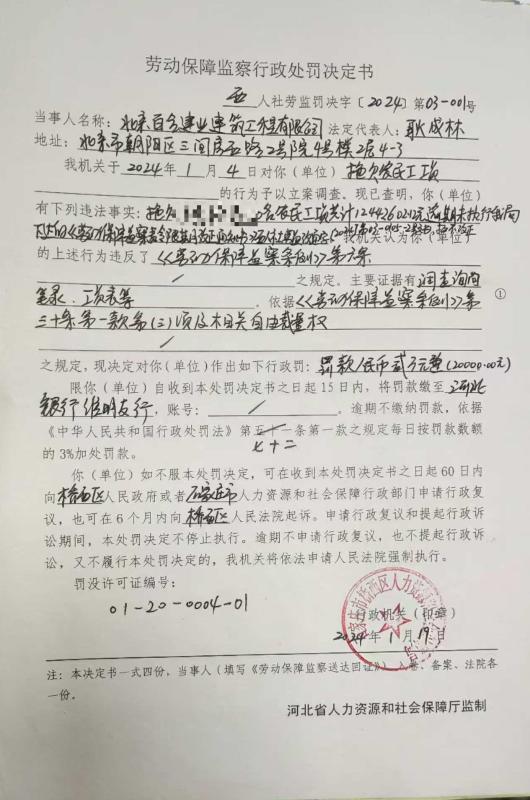 劳动保障监察行政处罚决定书
西 人社劳监罚决字〔2024〕第03-001号
当事人名称：北京百会建业建筑工程有限公司 法定代表人：耿成林
地址：北京市朝阳区三间房 路2号院4号楼2层4-3
我机关于2024年1月4日对你（单位）拖欠农民工工资
的行为予以立案调查。现已查明，你（单位）
有下列违法事实：拖欠 名农民工工资共计1244260.21元逾期未执行我局
我机关认为你（单位）
的上述行为违反了《劳动保障监察条例》第 条
之规定。主要证据有调查询问
笔录、工资表等。依据《劳动保障监察条例》第
三十条第一款第（三）项及相关自由裁量权
①
之规定，现决定对你（单位）作出如下行政罚：罚款人民币贰万元整（20000.00元）
限你（单位）自收到本处罚决定书之日起15日内，将罚款缴至河北
银行维明支行，账号： / 。逾期不缴纳罚款，依据
《中华人民共和国行政处罚法》第五十一条第一款之规定每日按罚款数额
七十二
的3%加处罚款。
你（单位）如不服本处罚决定，可在收到本处罚决定书之日起60日内
向桥西区人民政府或者石家庄市人力资源和社会保障行政部门申请行政复
议，也可在6个月内向桥西区人民法院起诉。申请行政复议和提起行政诉
讼期间，本处罚决定不停止执行。逾期不申请行政复议，也不提起行政诉
讼，又不履行本处罚决定的，我机关将依法申请人民法院强制执行。
罚没许可证编号：
01-20-0004-01
行政机关（印章）
2024年1月19日
注：本决定书一式四份，当事人（填写《劳动保障监察送达回证》）、 卷、备案、法院各
一份。
河北省人力资源和社会保障厅监制